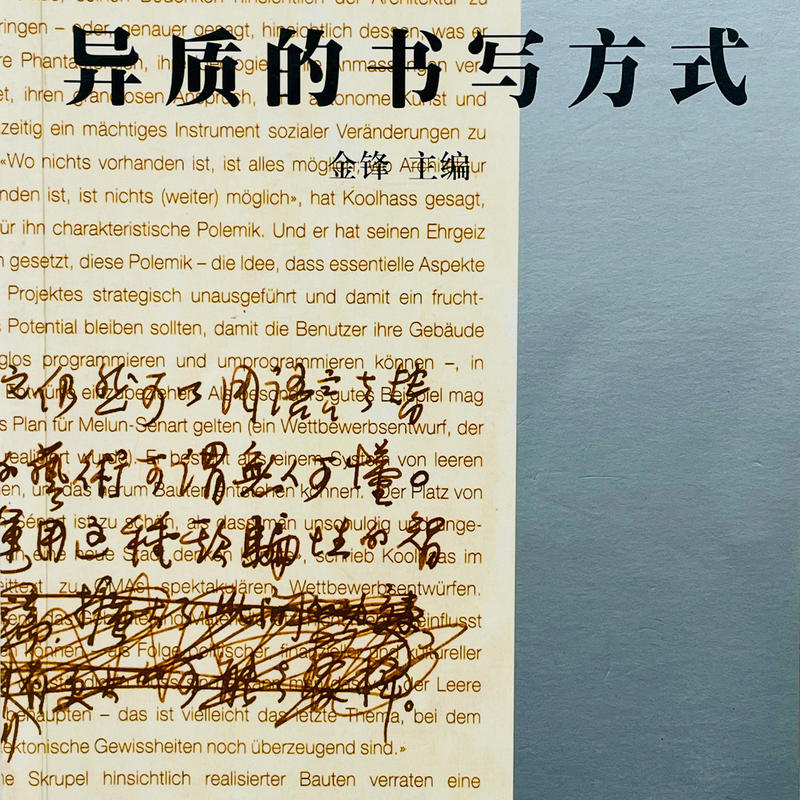 异质的书写方式
金锋 主编
hinsichtlich der Architektur zu
ringen – oder, genauer gesagt, hinsichtlich dessen, was er
et, ihren grandiosen Anspruch, autonome Kunst und
zeitig ein mächtiges Instrument sozialer Veränderungen zu
«Wo nichts vorhanden ist, ist alles möglich, wo Architektur
nden ist, ist nichts (weiter) möglich», hat Koolhass gesagt,
ür ihn charakteristische Polemik. Und er hat seinen Ehrgeiz
n gesetzt, diese Polemik – die Idee, dass essentielle Aspekte
Projektes strategisch unausgeführt und damit ein frucht-
s Potential bleiben sollten, damit die Benutzer ihre Gebäude
glos programmieren und umprogrammieren können –, in
Entwürfe einzubeziehen. Als besonders gutes Beispiel mag
仍然可以用語言去
s Plan für Melun-Sénart gelten (ein Wettbewerbsentwurf, der
realisiert wurde). Er besteht aus einem System von leeren
藝術可謂無人可懂。
en, um das herum Bauten entstehen können. «Der Platz von
Sénart ist zu schön, als dass man unschuldig und unge-
用這種欺騙性的智
eine neue Stadt denken könnte», schrieb Koolhaas im
zu OMAs spektakulären Wettbewerbsentwürfen.
beeinflusst
können – als Folge politischer, finanzieller und kultureller
der Leere
behaupten – das ist vielleicht das letzte Thema, bei dem
ektonische Gewissheiten noch überzeugend sind.»
ne Skrupel hinsichtlich realisierter Bauten verraten eine